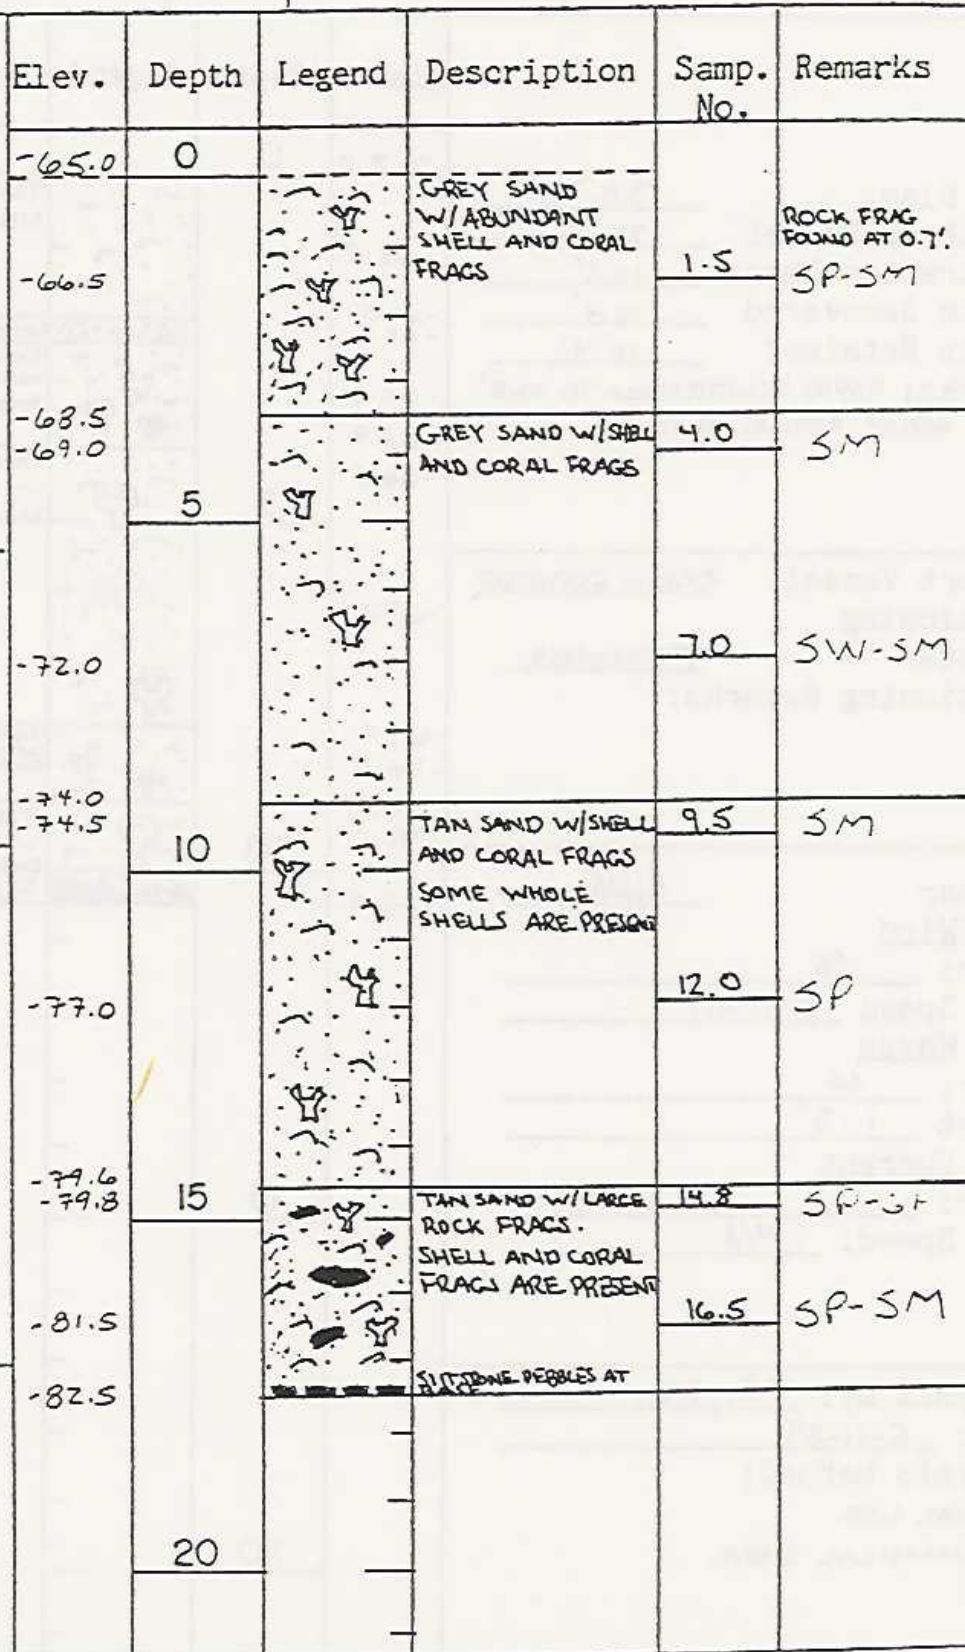 Elev. Depth Legend Description Samp. No. Remarks
-65.0 0
GREY SAND
W/ABUNDANT
SHELL AND CORAL
FRAGS
ROCK FRAG
FOUND AT 0.7'.
-66.5 1.5 SP-SM
-68.5
-69.0
GREY SAND W/SHELL
AND CORAL FRAGS
4.0 SM
5
-72.0 7.0 SW-SM
-74.0
-74.5
TAN SAND W/SHELL
AND CORAL FRAGS
SOME WHOLE
SHELLS ARE PRESENT
9.5 SM
10
-77.0 12.0 SP
-79.6
-79.8
15
TAN SAND W/LARGE
ROCK FRAGS.
SHELL AND CORAL
FRAGS ARE PRESENT
14.8
-81.5 16.5 SP-SM
SILTSTONE PEBBLES AT
BASE
-82.5
20